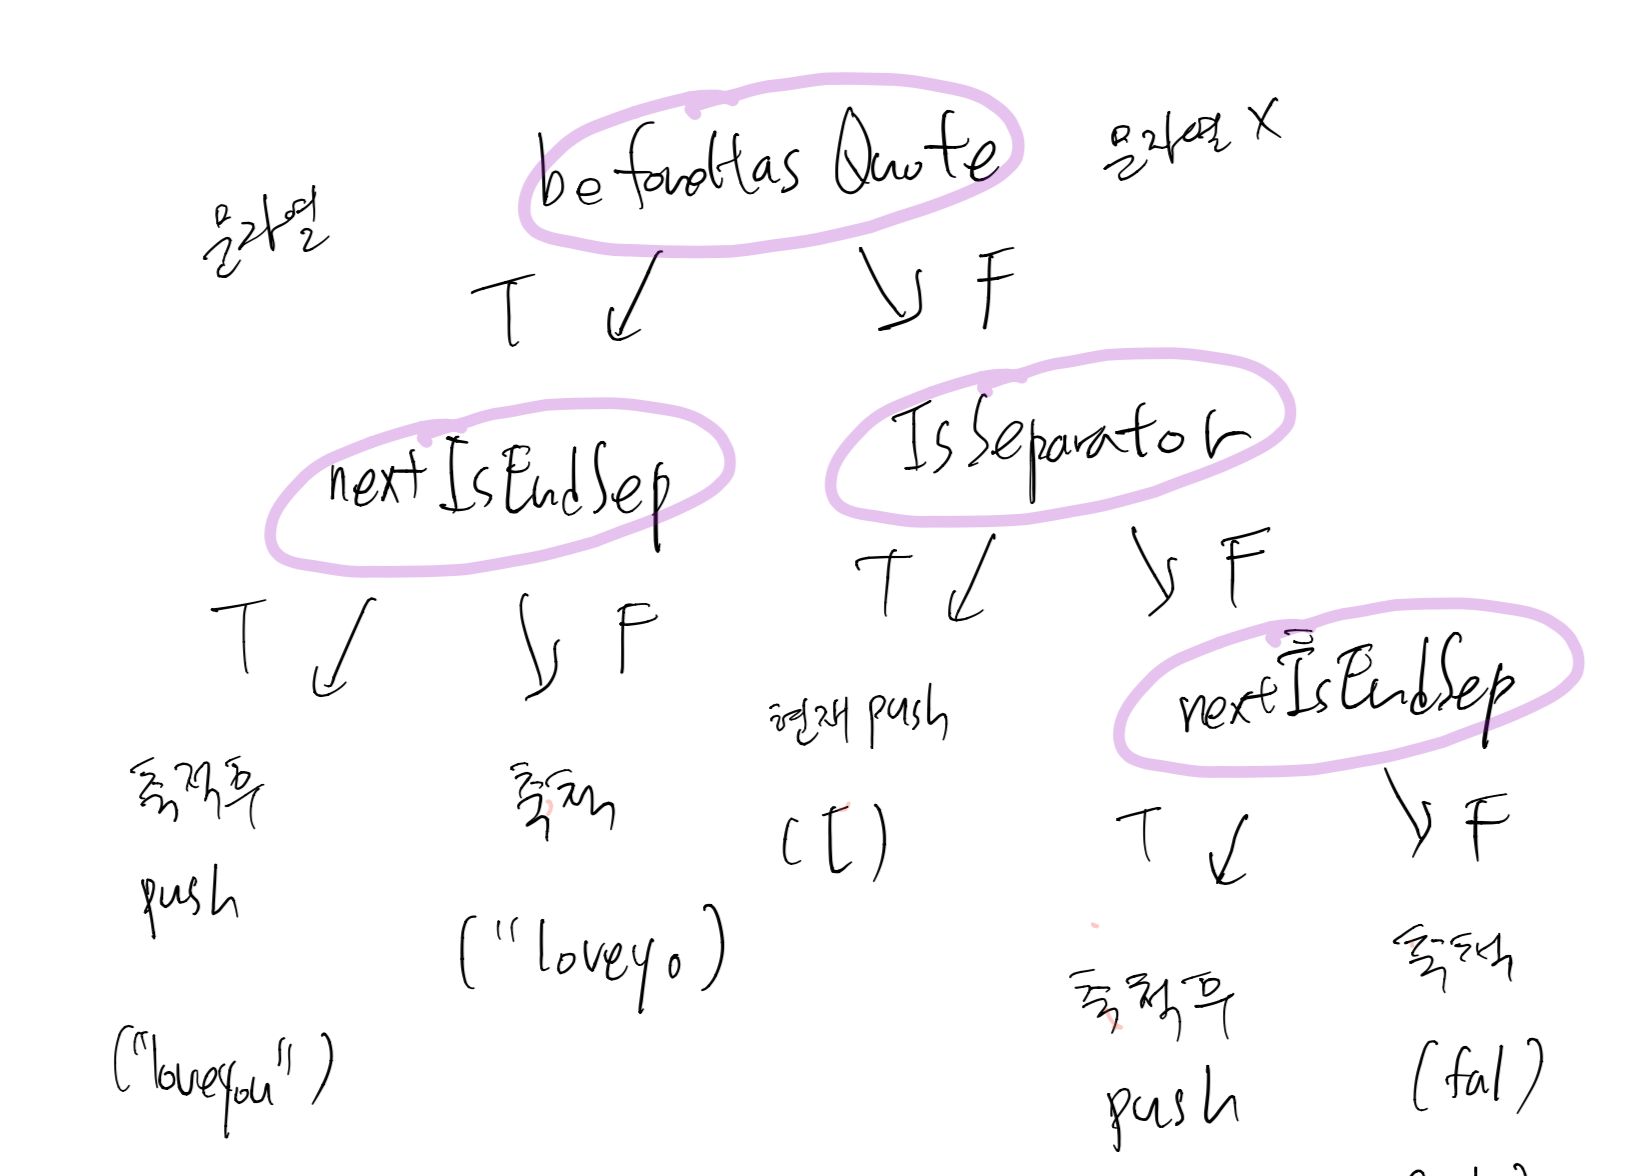 beforeHas Quote
문자열 X
문자열
T
F
IsSeparator
nextIsEndSep
T
F
T
F
nextIsEndSep
현재 push
축적후
push
축적
([)
T
F
("loveyo)
축적
축적후
push
("loveyou")
(fal)